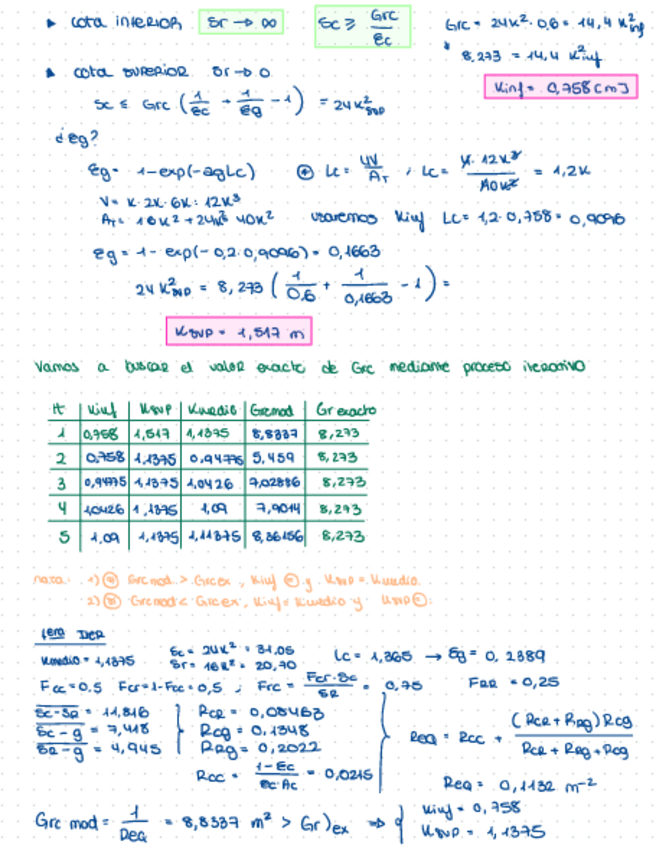 ▸ cota inferior Sr → ∞ Sc ≥ Grc/εc Grc = 24k² · 0,6 = 14,4 k²inf
8,273 = 14,4 k²inf
Kinf = 0,758 [m]
▸ cota superior Sr → 0
Sc ≤ Grc (1/εc + 1/εg - 1) = 24k²sup
¿εg?
εg = 1-exp(-ag Lc) Lc = 4V/AT ; Lc = 4·12k³/40k² = 1,2k
V = k·2k·6k = 12k³
AT = 16k² + 24k² 40k² usaremos Kinf Lc = 1,2·0,758 = 0,9096
εg = 1 - exp(-0,2·0,9096) = 0,1663
24 k²sup = 8,273 (1/0,6 + 1/0,1663 - 1) =
Ksup = 1,517 m
Vamos a buscar el valor exacto de Grc mediante proceso iterativo
It Kinf Ksup Kmedio Grcmod Gr exacto
1 0,758 1,517 1,1375 8,8337 8,273
2 0,758 1,1375 0,94775 5,459 8,273
3 0,94775 1,1375 1,0426 7,02886 8,273
4 1,0426 1,1375 1,09 7,9014 8,273
5 1,09 1,1375 1,11375 8,36156 8,273
nota: 1) Grcmod > Grcex, Kinf y Ksup = Kmedio.
2) Grcmod < Grcex, Kinf = Kmedio y Ksup
1era Iter
Kmedio = 1,1375 Sc = 24k² = 31,05 Lc = 1,365 → εg = 0,2389
Sr = 16k² = 20,70
Fcc = 0,5 Fcr = 1-Fcc = 0,5 ; Frc = Fcr·Sc/SR = 0,75 FRR = 0,25
Sc-SR = 11,816 RCR = 0,08463
Sc-g = 7,418 Rcg = 0,1348
SR-g = 4,945 RRg = 0,2022
Rcc = 1-εc/εc·Ac = 0,0215
Req = Rcc + (RCR + RRg) Rcg/RCR + RRg + Rcg
Req = 0,1132 m⁻²
Grc mod = 1/Req = 8,8337 m² > Gr)ex ⇒ Kinf = 0,758
Ksup = 1,1375